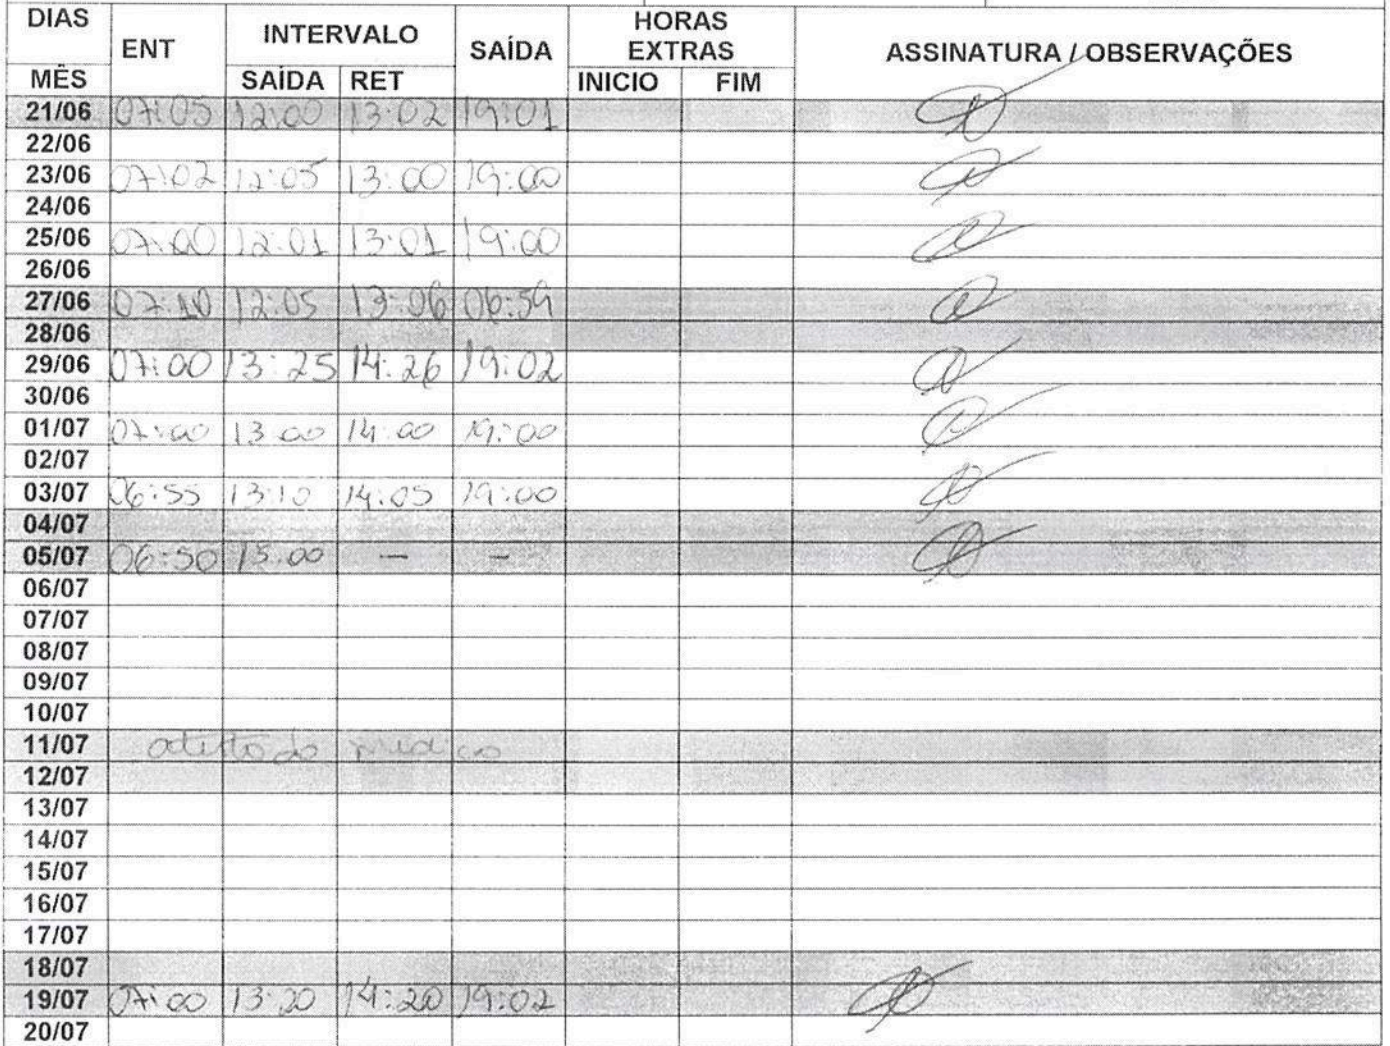 DIAS ENT INTERVALO SAÍDA HORAS EXTRAS ASSINATURA / OBSERVAÇÕES
MÊS SAÍDA RET INICIO FIM
21/06 07:05 12:00 13:02 19:01
22/06
23/06 07:02 12:05 13:00 19:00
24/06
25/06 07:00 12:01 13:01 19:00
26/06
27/06 07:10 12:05 13:06 06:59
28/06
29/06 07:00 13:25 14:26 19:02
30/06
01/07 07:00 13:00 14:00 19:00
02/07
03/07 06:55 13:10 14:05 19:00
04/07
05/07 06:50 13:00 — —
06/07
07/07
08/07
09/07
10/07
11/07 atestado médico
12/07
13/07
14/07
15/07
16/07
17/07
18/07
19/07 07:00 13:20 14:20 19:02
20/07